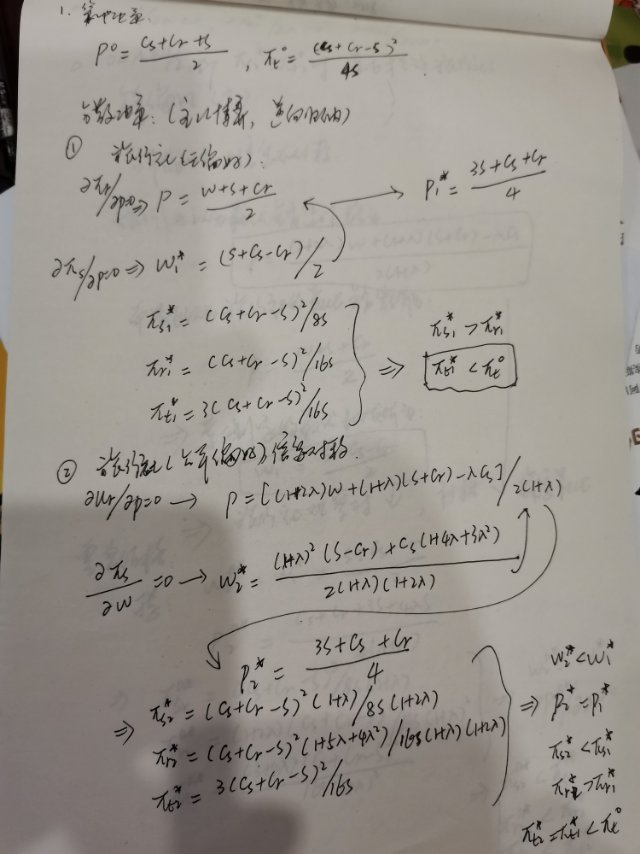 1. 集中决策
P⁰ = (Cs+Cr+s)/2 , π_t⁰ = (Cs+Cr-s)²/4s
分散决策: (主从博弈, 逆向归纳)
①
∂πr/∂p=0 ⇒ P = (w+s+Cr)/2 → P₁* = (3s+Cs+Cr)/4
∂πs/∂p=0 ⇒ w₁* = (s+Cs-Cr)/2
πs₁* = (Cs+Cr-s)²/8s
πr₁* = (Cs+Cr-s)²/16s
πt₁* = 3(Cs+Cr-s)²/16s
⇒ πs₁* > πr₁*
πt₁* < πt⁰
② (公平偏好) 信息对称.
∂ur/∂p=0 → P = [(1+2λ)w+(1+λ)(s+Cr)-λCs]/2(1+λ)
∂πs/∂w =0 → w₂* = ((1+λ)²(s-Cr)+Cs(1+4λ+3λ²))/(2(1+λ)(1+2λ))
P₂* = (3s+Cs+Cr)/4
⇒ πs₂* = (Cs+Cr-s)²(1+λ)/8s(1+2λ)
πr₂* = (Cs+Cr-s)²(1+5λ+4λ²)/16s(1+λ)(1+2λ)
πt₂* = 3(Cs+Cr-s)²/16s
⇒ w₂* < w₁*
P₂* = P₁*
πs₂* < πs₁*
πr₂* > πr₁*
πt₂* = πt₁* < πt⁰